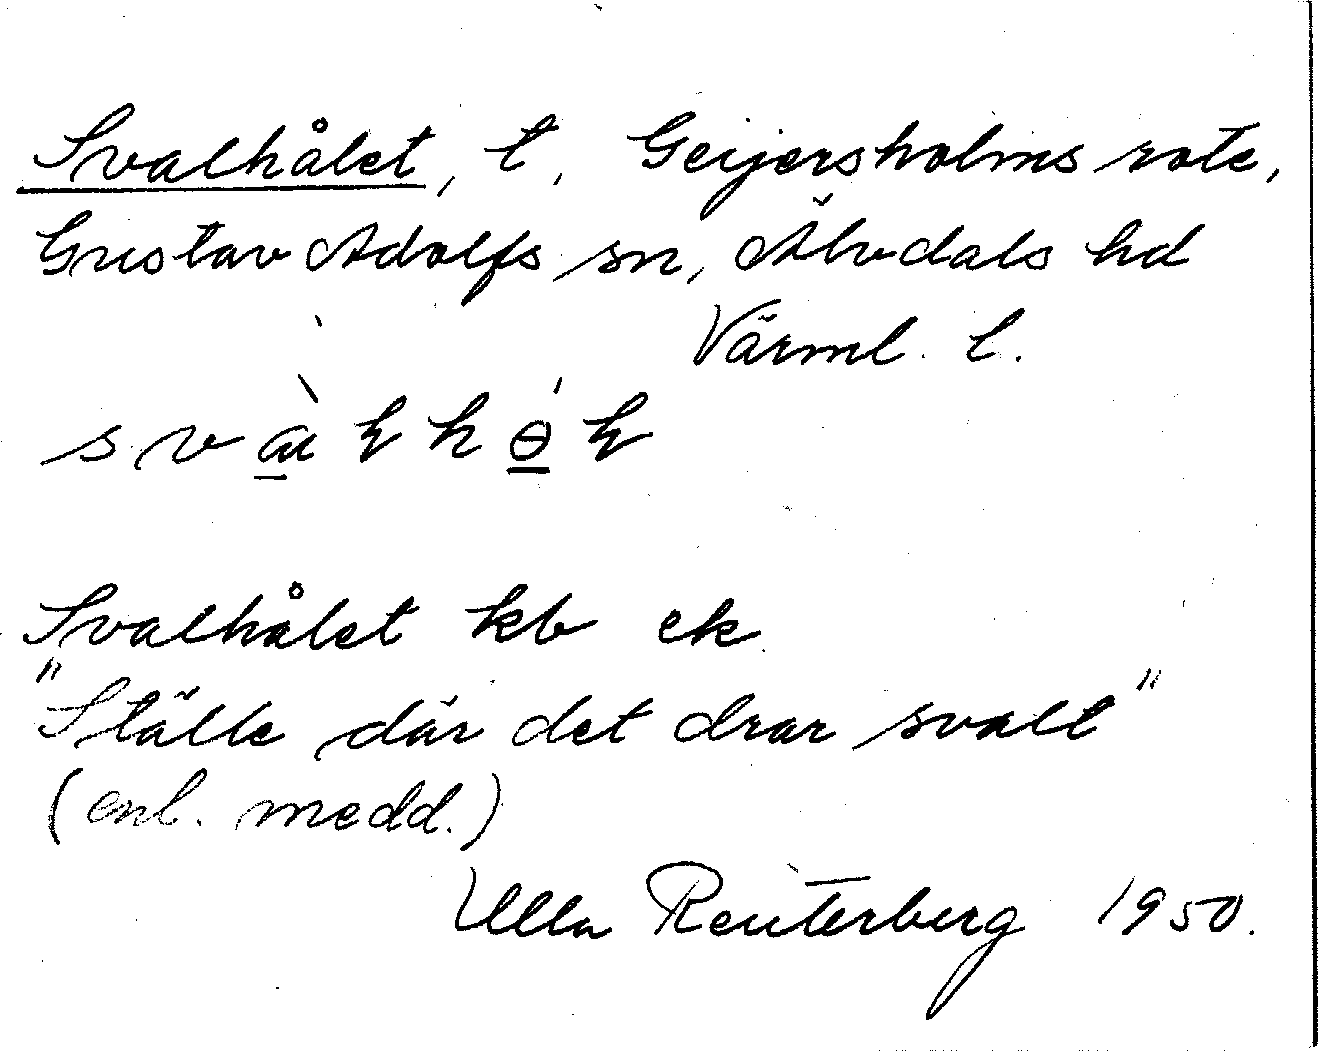 Svalhålet, t, Geijersholms rote,
Gustav Adolfs sn, Älvdals hd
Värml. l.
Svalhålet kb ek
"Ställe där det drar svalt"
(enl. medd.)
Ulla Reuterberg 1950.